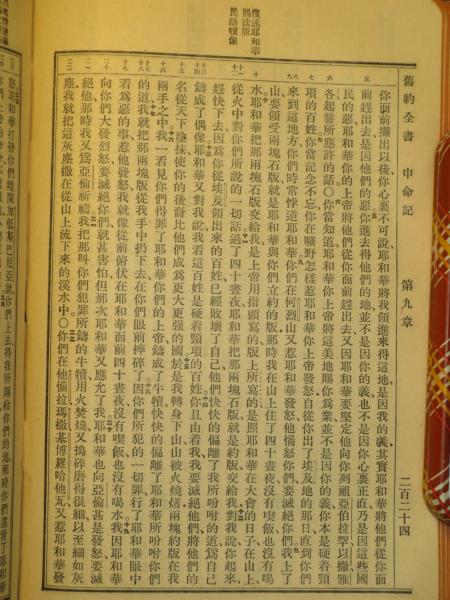 舊約全書 申命記 第九章 二百二十四
復述耶和華
賜法版
民鑄犢像
你面前攆出以後你心裏不可說耶和華將我領進來得這地是因我的義其實耶和華將他們從你面
前趕出去是因他們的惡你進去得他們的地並不是因你的義也不是因你心裏正直乃是因這些國
民的惡耶和華你的上帝將他們從你面前趕出去又因耶和華要堅定他向你列祖亞伯拉罕以撒雅
各起誓所應許的話〇你當知道耶和華你上帝將這美地賜你爲業並不是因你的義你本是硬着頸
項的百姓你當記念不忘你在曠野怎樣惹耶和華你上帝發怒自從你出了埃及地的那日直到你們
來到這地方你們時常悖逆耶和華你們在何烈山又惹耶和華發怒他惱怒你們要滅絕你們我上了
山要領受兩塊石版就是耶和華與你們立約的版那時我在山上住了四十晝夜沒有喫飯也沒有喝
水耶和華把那兩塊石版交給我是上帝用指頭寫的版上所寫的是照耶和華在大會的日子在山上
從火中對你們所說的一切話過了四十晝夜耶和華把那兩塊石版就是約版交給我對我說你起來
趕快下去因爲你從埃及領出來的百姓已經敗壞了自己他們快快的偏離了我所吩咐的道爲自己
鑄成了偶像耶和華又對我說我看這百姓是硬着頸項的百姓你且由着我我要滅絕他們將他們的
名從天下塗抹使你的後裔比他們成爲更大更強的國於是我轉身下山山被火燒着兩塊約版在我
兩手之中我一看見你們得罪了耶和華你們的上帝鑄成了牛犢快快的偏離了耶和華所吩咐你們
的道我就把那兩塊版從我手中扔下去在你們眼前摔碎了因你們所犯的一切罪行了耶和華眼中
看爲惡的事惹他發怒我就像從前俯伏在耶和華面前四十晝夜沒有喫飯也沒有喝水我因耶和華
向你們大發烈怒要滅絕你們就甚害怕但那次耶和華又應允了我耶和華也向亞倫甚是發怒要滅
絕他那時我又爲亞倫祈禱我把那叫你們犯罪所鑄的牛犢用火焚燒又搗碎磨得很細以至細如灰
塵我就把這灰塵撒在從山上流下來的溪水中〇你們在他備拉瑪撒基博羅哈他瓦又惹耶和華發
怒耶和華打發你們離開加低斯巴尼亞說你們上去得我所賜給你們的地那時你們違背了耶和華